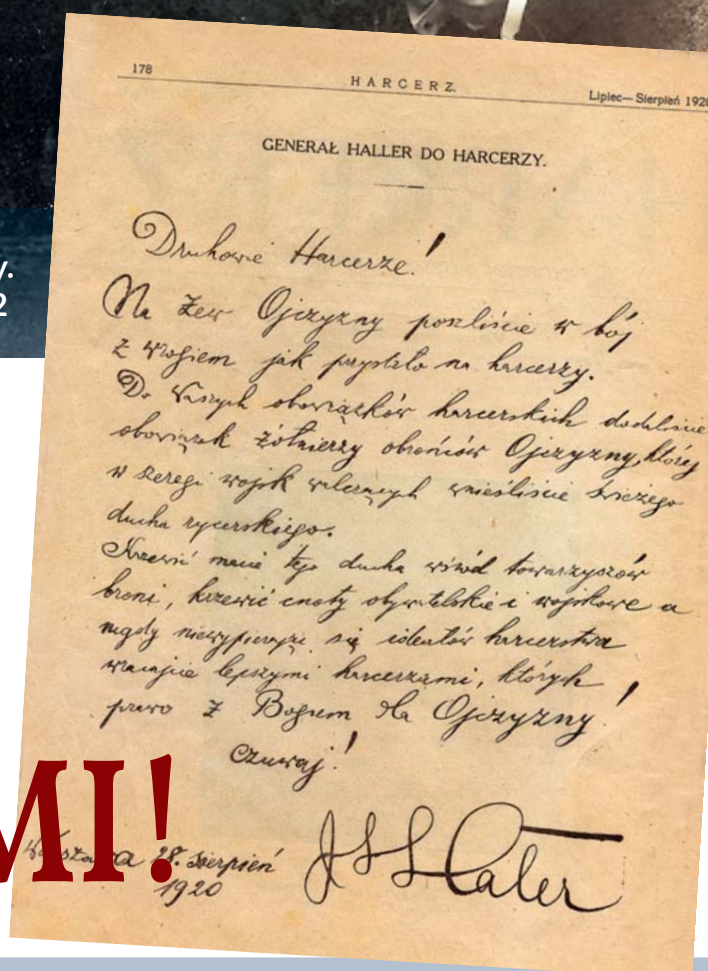 y.
2
178
HARCERZ.
Lipiec—Sierpień 1920
GENERAŁ HALLER DO HARCERZY.
Druhowie Harcerze!
Na zew Ojczyzny poszliście w bój
z wrogiem jak przystało na harcerzy.
Do Waszych obowiązków harcerskich dodaliście
obowiązek żołnierzy obrońców Ojczyzny, której
w szeregi wojsk walczących wnieśliście świeżego
ducha rycerskiego.
Krzewić macie tego ducha wśród towarzyszów
broni, krzewić cnoty obywatelskie i wojskowe a
nigdy się ideałów harcerstwa
wracajcie lepszymi harcerzami, których
prawo z Bogiem dla Ojczyzny!
Czuwaj!
MI!
Warszawa 28. sierpień
1920
Haller